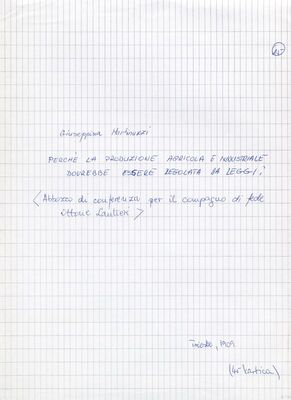 45
Giuseppina Martinuzzi
PERCHÈ LA PRODUZIONE AGRICOLA E INDUSTRIALE
DOVREBBE ESSERE REGOLATA DA LEGGI;
(Abbozzo di conferenza per il compagno di fede
Vittorio Lantieri)
Trieste, 1909.
(45 kartica)